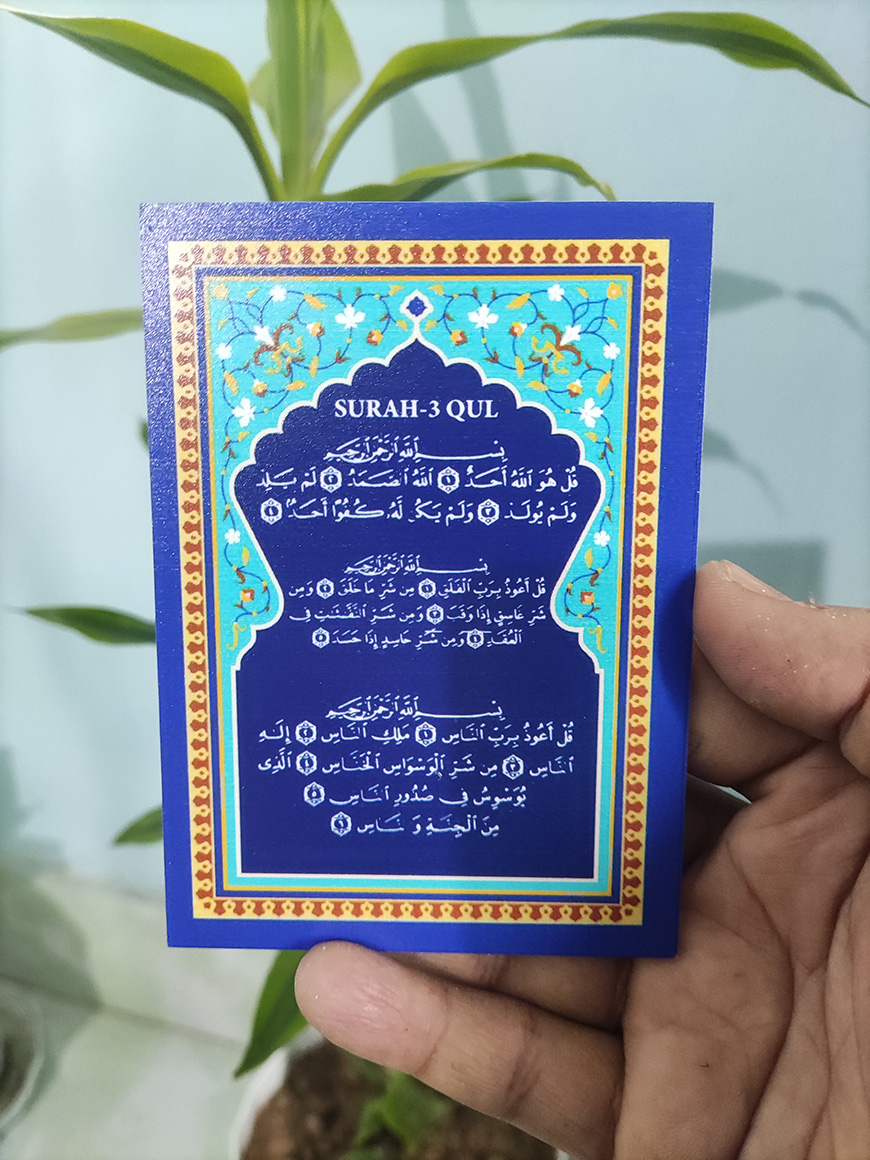 SURAH-3 QUL
بِسْمِ اللَّهِ الرَّحْمَٰنِ الرَّحِيمِ
قُلْ هُوَ اللَّهُ أَحَدٌ ١ اللَّهُ الصَّمَدُ ٢ لَمْ يَلِدْ
وَلَمْ يُولَدْ ٣ وَلَمْ يَكُن لَّهُ كُفُوًا أَحَدٌ ٤
بِسْمِ اللَّهِ الرَّحْمَٰنِ الرَّحِيمِ
قُلْ أَعُوذُ بِرَبِّ الْفَلَقِ ١ مِن شَرِّ مَا خَلَقَ ٢ وَمِن
شَرِّ غَاسِقٍ إِذَا وَقَبَ ٣ وَمِن شَرِّ النَّفَّٰثَٰتِ فِى
الْعُقَدِ ٤ وَمِن شَرِّ حَاسِدٍ إِذَا حَسَدَ ٥
بِسْمِ اللَّهِ الرَّحْمَٰنِ الرَّحِيمِ
قُلْ أَعُوذُ بِرَبِّ النَّاسِ ١ مَلِكِ النَّاسِ ٢ إِلَٰهِ
النَّاسِ ٣ مِن شَرِّ الْوَسْوَاسِ الْخَنَّاسِ ٤ الَّذِى
يُوَسْوِسُ فِى صُدُورِ النَّاسِ ٥
مِنَ الْجِنَّةِ وَ نَاسِ ٦